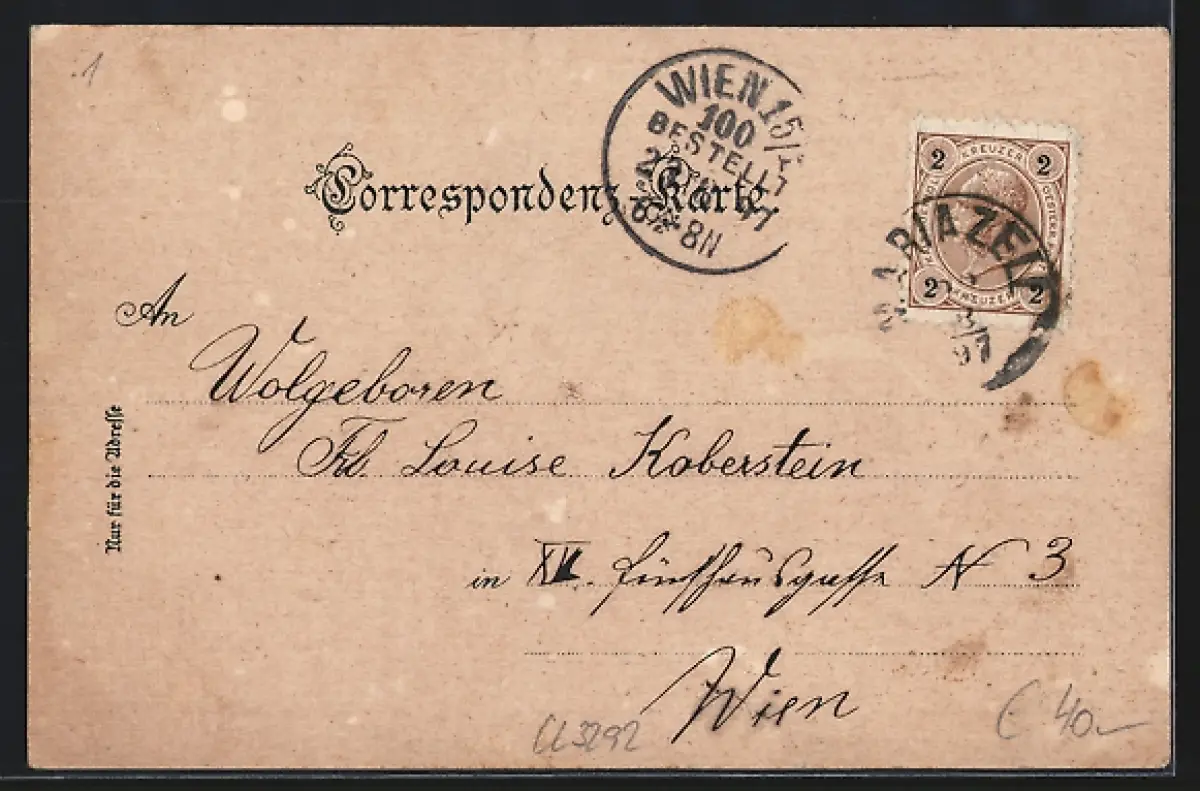 1
WIEN 15/1
100
BESTELLT
97
8N
Correspondenz-Karte.
2 KREUZER 2
MARIAZELL
2 KREUZER 2
97
An
Wolgeboren
Frl. Louise Koberstein
Nur für die Adresse
in XV. Fünfhausgasse N 3
Wien
CL3292
€ 40.-